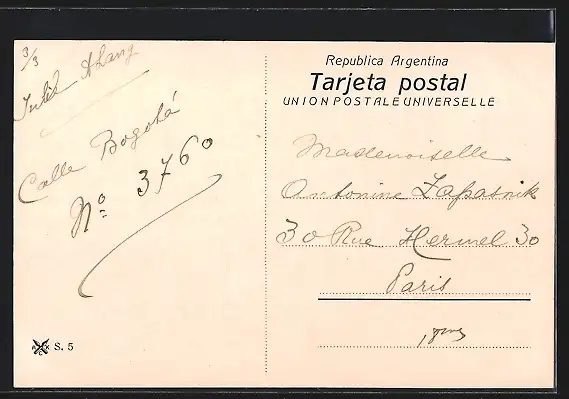 3/3
Calle Bogotá
Nº 3760
S. 5
Republica Argentina
Tarjeta postal
UNION POSTALE UNIVERSELLE
Mademoiselle
Antonine Zapasnik
30 Rue Hermel 30
Paris